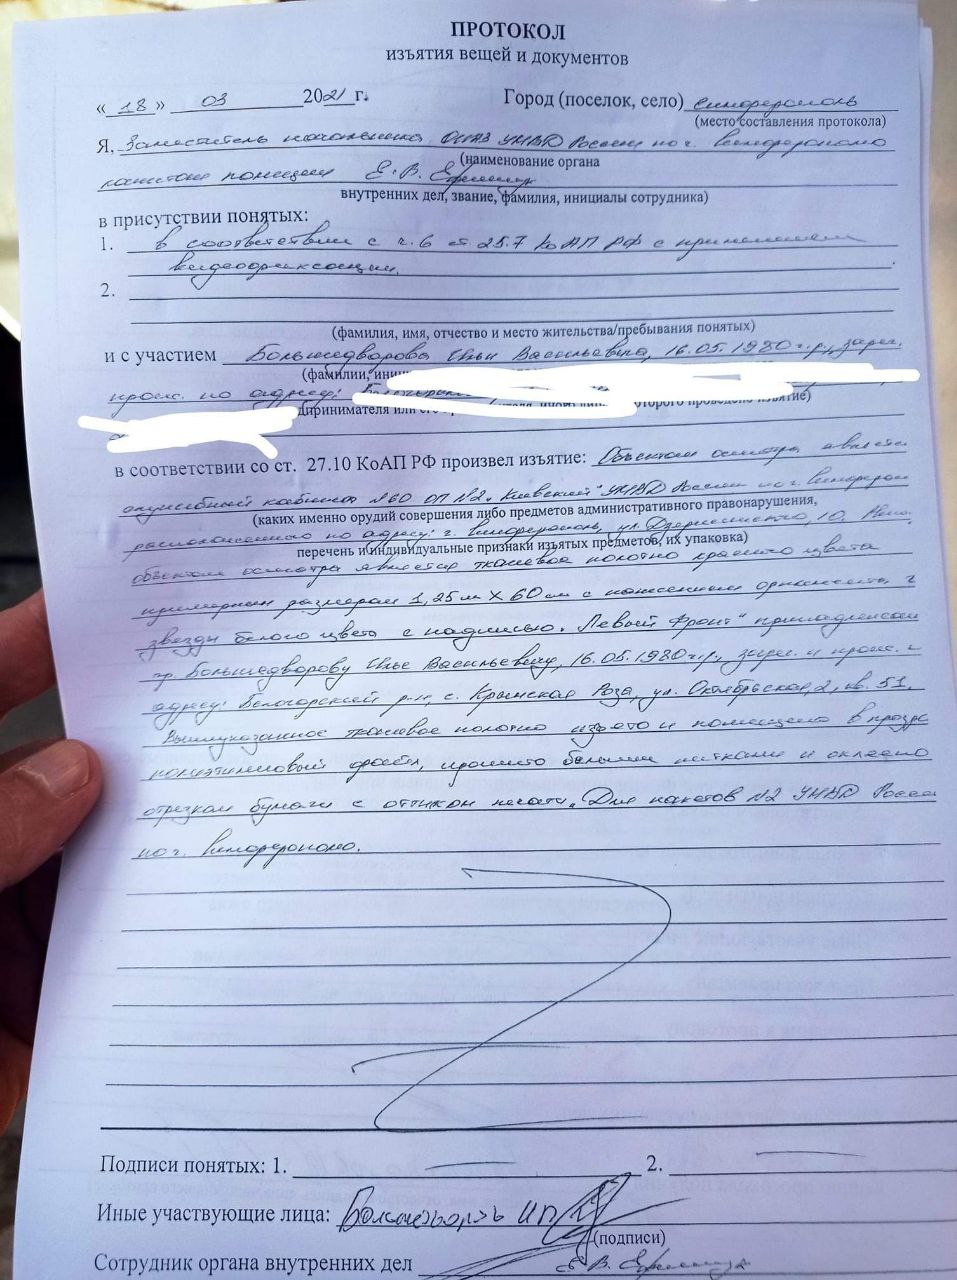 ПРОТОКОЛ
изъятия вещей и документов
« 18 » 03 2021 г. Город (поселок, село) Симферополь
(место составления протокола)
Я, Заместитель начальника УМВД России по г. Симферополю
(наименование органа
капитан полиции Е. В.
внутренних дел, звание, фамилия, инициалы сотрудника)
в присутствии понятых:
1. в соответствии с ч. 6 ст. 25.7 КоАП РФ с применением
видеофиксации.
2.
(фамилия, имя, отчество и место жительства/пребывания понятых)
и с участием Большедворова Ильи Васильевича, 16.05.1980 г.р., зарег.
(фамилии,
прож. по адресу:
которого проведено изъятие)
в соответствии со ст. 27.10 КоАП РФ произвел изъятие: Объектом осмотра является
служебный кабинет №60 ОП №2 „Киевский“ УМВД России по г. Симферополю
(каких именно орудий совершения либо предметов административного правонарушения,
расположенного по адресу: г. Симферополь, ул. Дзержинского, 10.
перечень и индивидуальные признаки изъятых предметов, их упаковка)
объектом осмотра является тканевое полотно красного цвета
примерным размером 1,25 м X 60 см с нанесенным орнаментом
звезды белого цвета с надписью „Левый Фронт“
гр. Большедворову Илье Васильевичу, 16.05.1980 г.р., зарег. и прож.
адресу: Белогорский р-н, с. Крымская Роза, ул. Октябрьская, 2, кв. 51.
Вышеуказанное тканевое полотно изъято и помещено в
полиэтиленовый прошито белыми нитками и оклеено
отрезком бумаги с оттиском печати „Для пакетов №2 УМВД России
по г. Симферополю.
Подписи понятых: 1. 2.
Иные участвующие лица: Большедворов И
(подписи)
Сотрудник органа внутренних дел Е. В.